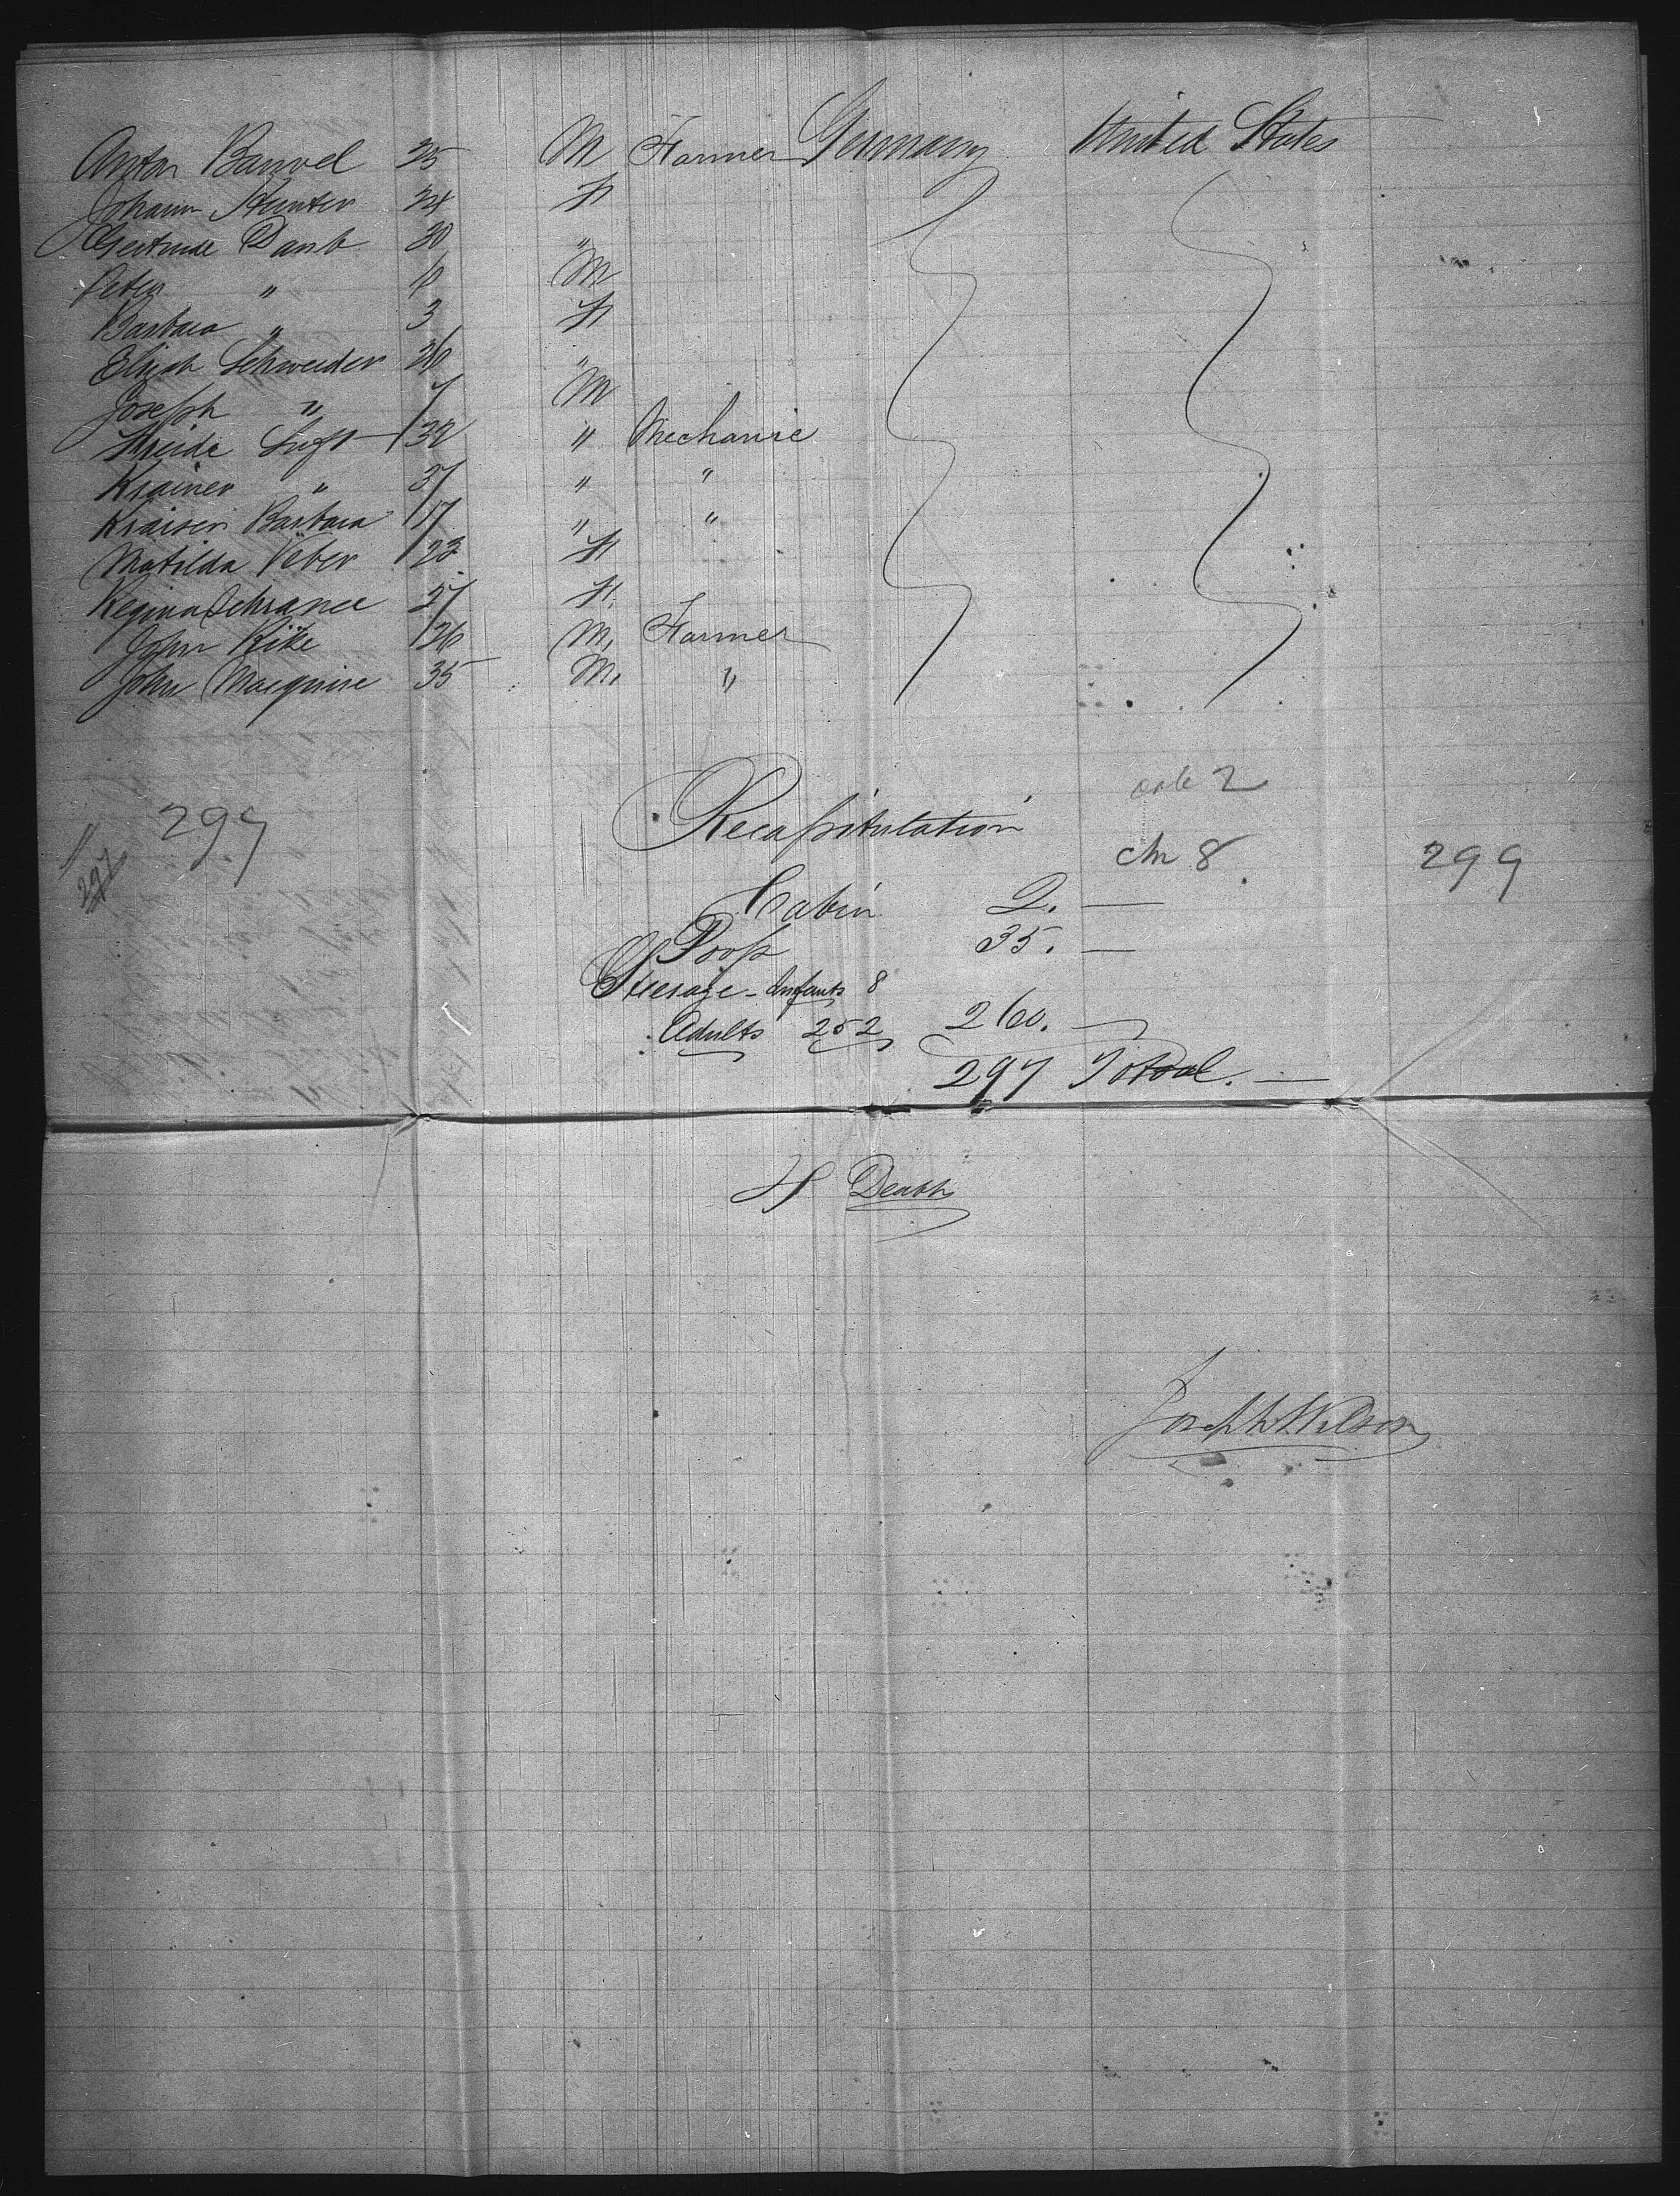 Anton Banvel 25 M Farmer Germany United States
Johann Hunter 24 F
Gertrude Danb 30 "
Peter " M
Barbara " 3 F
Schweider 36 "
Joseph " 7 M
Luft 32 " Mechanic
Krainer " 37 " "
Kraisen Barbara 17 " "
Matilda Veber 23 F
Regina Schranee 27 F.
John Kike 36 M. Farmer
John Macquire 35 M. "
297
297
Recapitulation
cab 2
ch 8
299
Cabin 2. —
Poop 35. —
Steerage - Infants 8
Adults 252 260. —
297 Total. —
Death
Joseph Wilson